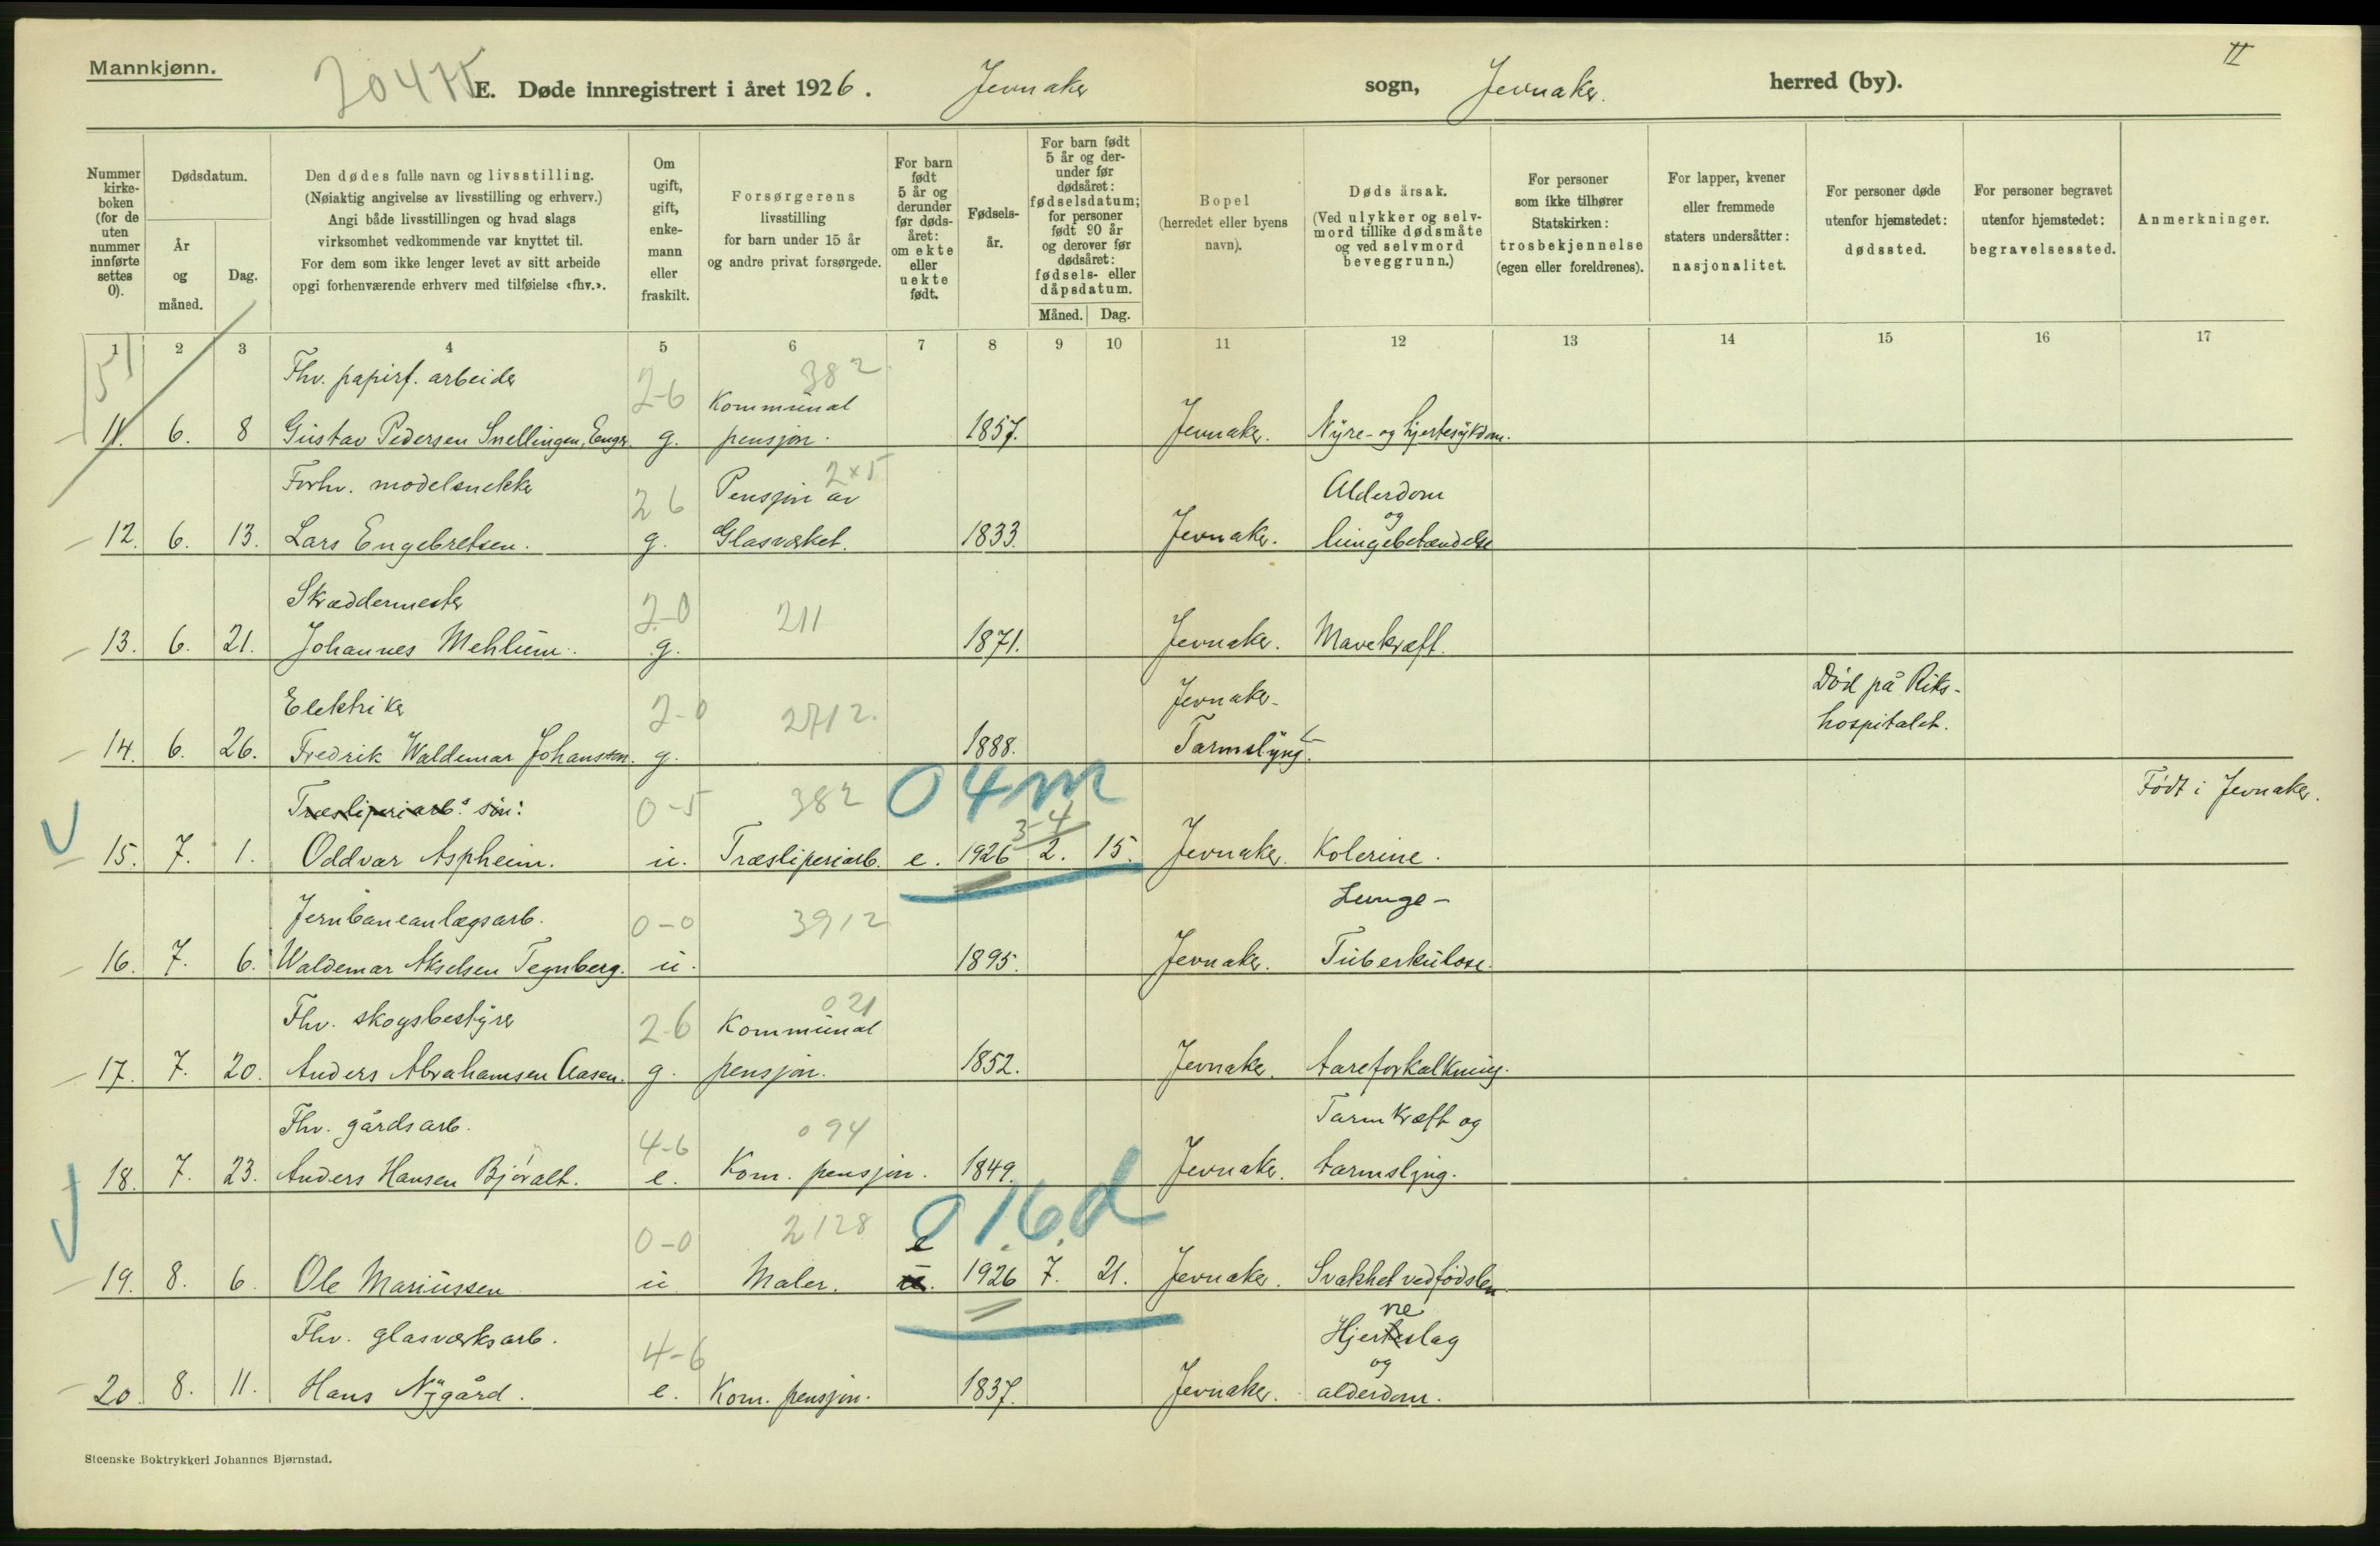 Mannkjønn.
II
20475
E. Døde innregistrert i året 1926. Jevnaker sogn, Jevnaker. herred (by).
Nummer kirke-boken (for de uten nummer innførte settes 0).
Dødsdatum.
År og måned.
Dag.
Den dødes fulle navn og livsstilling.
(Nøiaktig angivelse av livsstilling og erhverv.)
Angi både livsstillingen og hvad slags
virksomhet vedkommende var knyttet til.
For dem som ikke lenger levet av sitt arbeide
opgi forhenværende erhverv med tilføielse «fhv.».
Om ugift, gift, enke-mann eller fraskilt.
Forsørgerens
livsstilling
for barn under 15 år
og andre privat forsørgede.
For barn født 5 år og derunder før døds-året: om ekte eller uekte født.
Fødsels-år.
For barn født 5 år og der-under før dødsåret: fødselsdatum; for personer født 90 år og derover før dødsåret: fødsels- eller dåpsdatum.
Måned.
Dag.
Bopel
(herredet eller byens
navn).
Dødsårsak.
(Ved ulykker og selv-
mord tillike dødsmåte
og ved selvmord
beveggrunn.)
For personer
som ikke tilhører
Statskirken:
trosbekjennelse
(egen eller foreldrenes).
For lapper, kvener
eller fremmede
staters undersåtter:
nasjonalitet.
For personer døde
utenfor hjemstedet:
dødssted.
For personer begravet
utenfor hjemstedet:
begravelsessted.
Anmerkninger.
1 2 3 4 5 6 7 8 9 10 11 12 13 14 15 16 17
51
Fhv. papirf. arbeider 2-6 Kommunal 382
11. 6. 8 Gustav Pedersen Snellingen, Enger. g. pensjon. 1857. Jevnaker. Nyre- og hjertesykdom.
Forhv. modelsnekker 26 Pensjon av 2x5 Alderdom
og
12. 6. 13. Lars Engebretsen. g. Glasværket. 1833. Jevnaker. lungebetændelse
Skræddermester 2-0 211
13. 6. 21. Johannes Mehlum. g. 1871. Jevnaker. Mavekræft.
Elektriker 2-0 2712. Jevnaker. Død på Riks-
hospitalet.
14. 6. 26. Fredrik Waldemar Johanssen. g. 1888. Tarmslyng.
Træsliperiarb.s søn: 0-5 382 04m Født i Jevnaker.
3-4
15. 7. 1. Oddvar Aspheim. u. Træsliperiarb. e. 1926 2. 15. Jevnaker. Kolerine.
Jernbaneanlægsarb. 0-0 3912 Lunge-
16. 7. 6. Waldemar Akselsen Tegnberg. u. 1895. Jevnaker. Tuberkulose.
Fhv. skogsbestyrer 2-6 Kommunal 021
17. 7. 20. Anders Abrahamsen Aasen. g. pensjon. 1852. Jevnaker. Aareforkalkning.
Fhv. gårdsarb. 4-6 094 Tarmkræft og
18. 7. 23. Anders Hansen Bjøralt. e. Kom. pensjon. 1849. Jevnaker. tarmslyng.
0-0 2128 0 16.d
e
19. 8. 6. Ole Mariussen u. Maler. u. 1926 7. 21. Jevnaker. Svakhet ved fødslen
Fhv. glasværksarb. 4-6 ne
Hjerteslag
og
20. 8. 11. Hans Nygård. e. Kom. pensjon. 1837. Jevnaker. alderdom.
Steenske Boktrykkeri Johannes Bjørnstad.